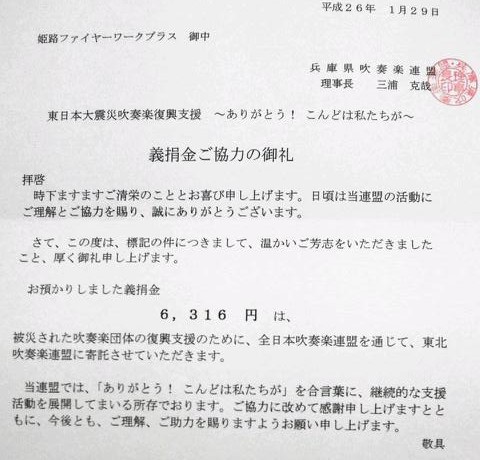 平成26年　1月29日
姫路ファイヤーワークブラス　御中
兵庫県吹奏楽連盟
理事長　三浦　克哉
東日本大震災吹奏楽復興支援　～ありがとう！ こんどは私たちが～
義捐金ご協力の御礼
拝啓
時下ますますご清栄のこととお喜び申し上げます。日頃は当連盟の活動に
ご理解とご協力を賜り、誠にありがとうございます。
さて、この度は、標記の件につきまして、温かいご芳志をいただきました
こと、厚く御礼申し上げます。
お預かりしました義捐金
６，３１６　円　は、
被災された吹奏楽団体の復興支援のために、全日本吹奏楽連盟を通じて、東北
吹奏楽連盟に寄託させていただきます。
当連盟では、「ありがとう！ こんどは私たちが」を合言葉に、継続的な支援
活動を展開してまいる所存でおります。ご協力に改めて感謝申し上げますとと
もに、今後とも、ご理解、ご助力を賜りますようお願い申し上げます。
敬具